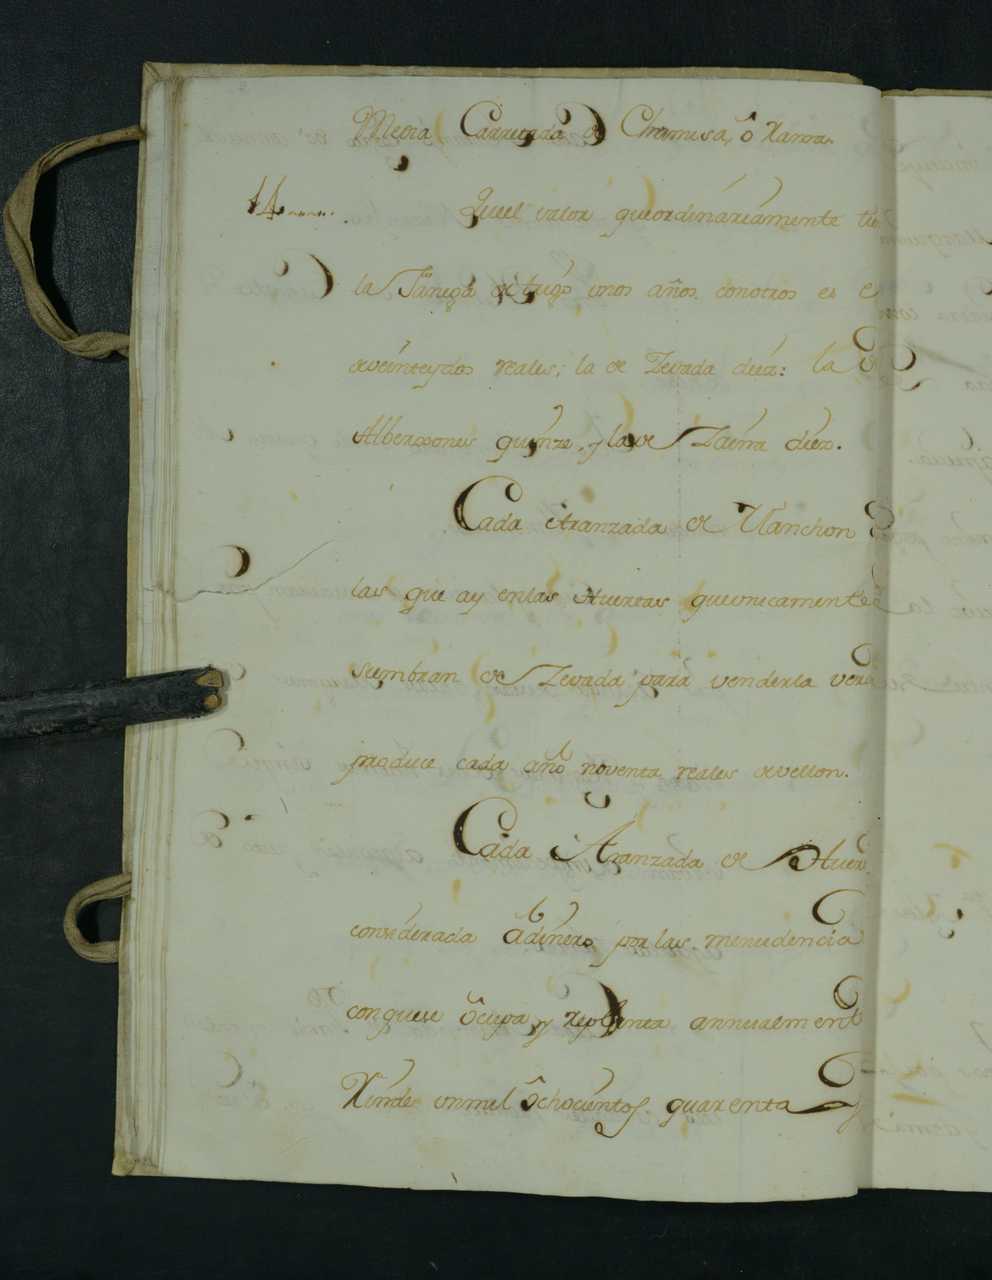 Media Carretada de Chamisa, ô Xarra.
14...... Que el valor que ordinariamente tie
la Fanega de trigo unos años con otros es e
de veinte y dos reales; la de Zevada diez: la
Alberxones quinze, y la de Zaina diez.
Cada Aranzada de Planchon
las que ay en las Huertas que unicamente
siembran de Zevada para venderla ver
produce cada año noventa reales de vellon.
Cada Aranzada de Huer
considerada â dinero por las menudencia
con que se ôcupa, y annualment
Rinde un mil ôchocientos quarenta y